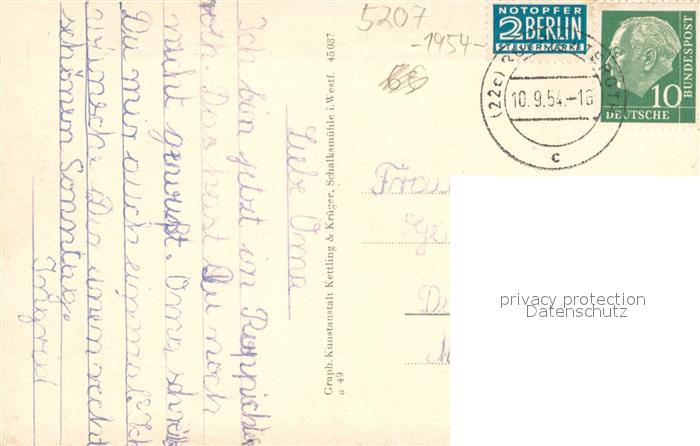 5207
-1954-
NOTOPFER
2 BERLIN
STEUERMARKE
DEUTSCHE
BUNDESPOST
10
(22c)
10.9.54.-16
c
Liebe Oma
Ich bin jetzt in
noch. Das hast Du noch
nicht gewußt. Oma schreib
Du mir auch einmal. Ich
wünsche Dir einen recht
schönen Sonntag.
Ingrid
Graph. Kunstanstalt Kettling & Krüger, Schalksmühle i. Westf. 45 037
a 49
Frau
privacy protection
Datenschutz